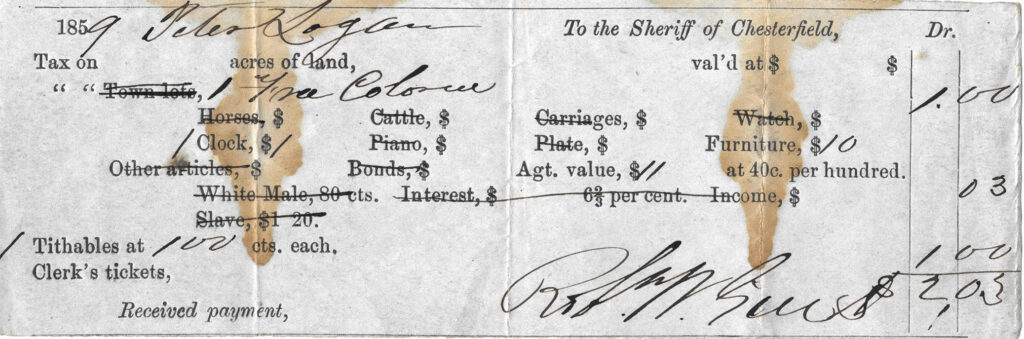 1859 Peter Logan To the Sheriff of Chesterfield, Dr.
Tax on acres of land, val'd at $ $
" " Town lots, 1 Free Colored 1.00
Horses, $ Cattle, $ Carriages, $ Watch, $
1 Clock, $1 Piano, $ Plate, $ Furniture, $10
Other articles, $ Bonds, $ Agt. value, $11 at 40c. per hundred.
White Male, 80 cts. Interest, $ 6⅔ per cent. Income, $ 03
Slave, $1 20.
1 Tithables at 100 cts. each. 100
Clerk's tickets, $2,03
Received payment,